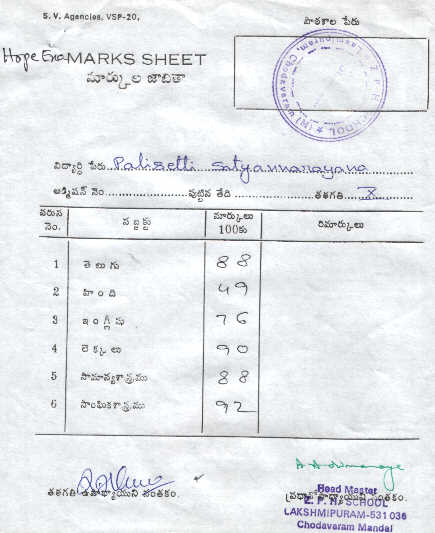 S. V. Agencies, VSP-20.
పాఠశాల పేరు
Hope Era MARKS SHEET
మార్కుల జాబితా
Z. P. H. SCHOOL ★ (M) Chodavaram
విద్యార్థి పేరు Palisetti Satyannarayana
అడ్మిషన్ నెం. పుట్టిన తేది తరగతి X
వరుస నెం. సబ్జక్టు మార్కులు 100కు రిమార్కులు
1 తెలుగు 88
2 హింది 49
3 ఇంగ్లీషు 76
4 లెక్కలు 90
5 సామాన్యశాస్త్రము 88
6 సాంఘికశాస్త్రము 92
తరగతి ఉపాధ్యాయుని సంతకం. ప్రధానోపాధ్యాయుని సంతకం.
Head Master
Z. P. H. SCHOOL
LAKSHMIPURAM-531 036
Chodavaram Mandal